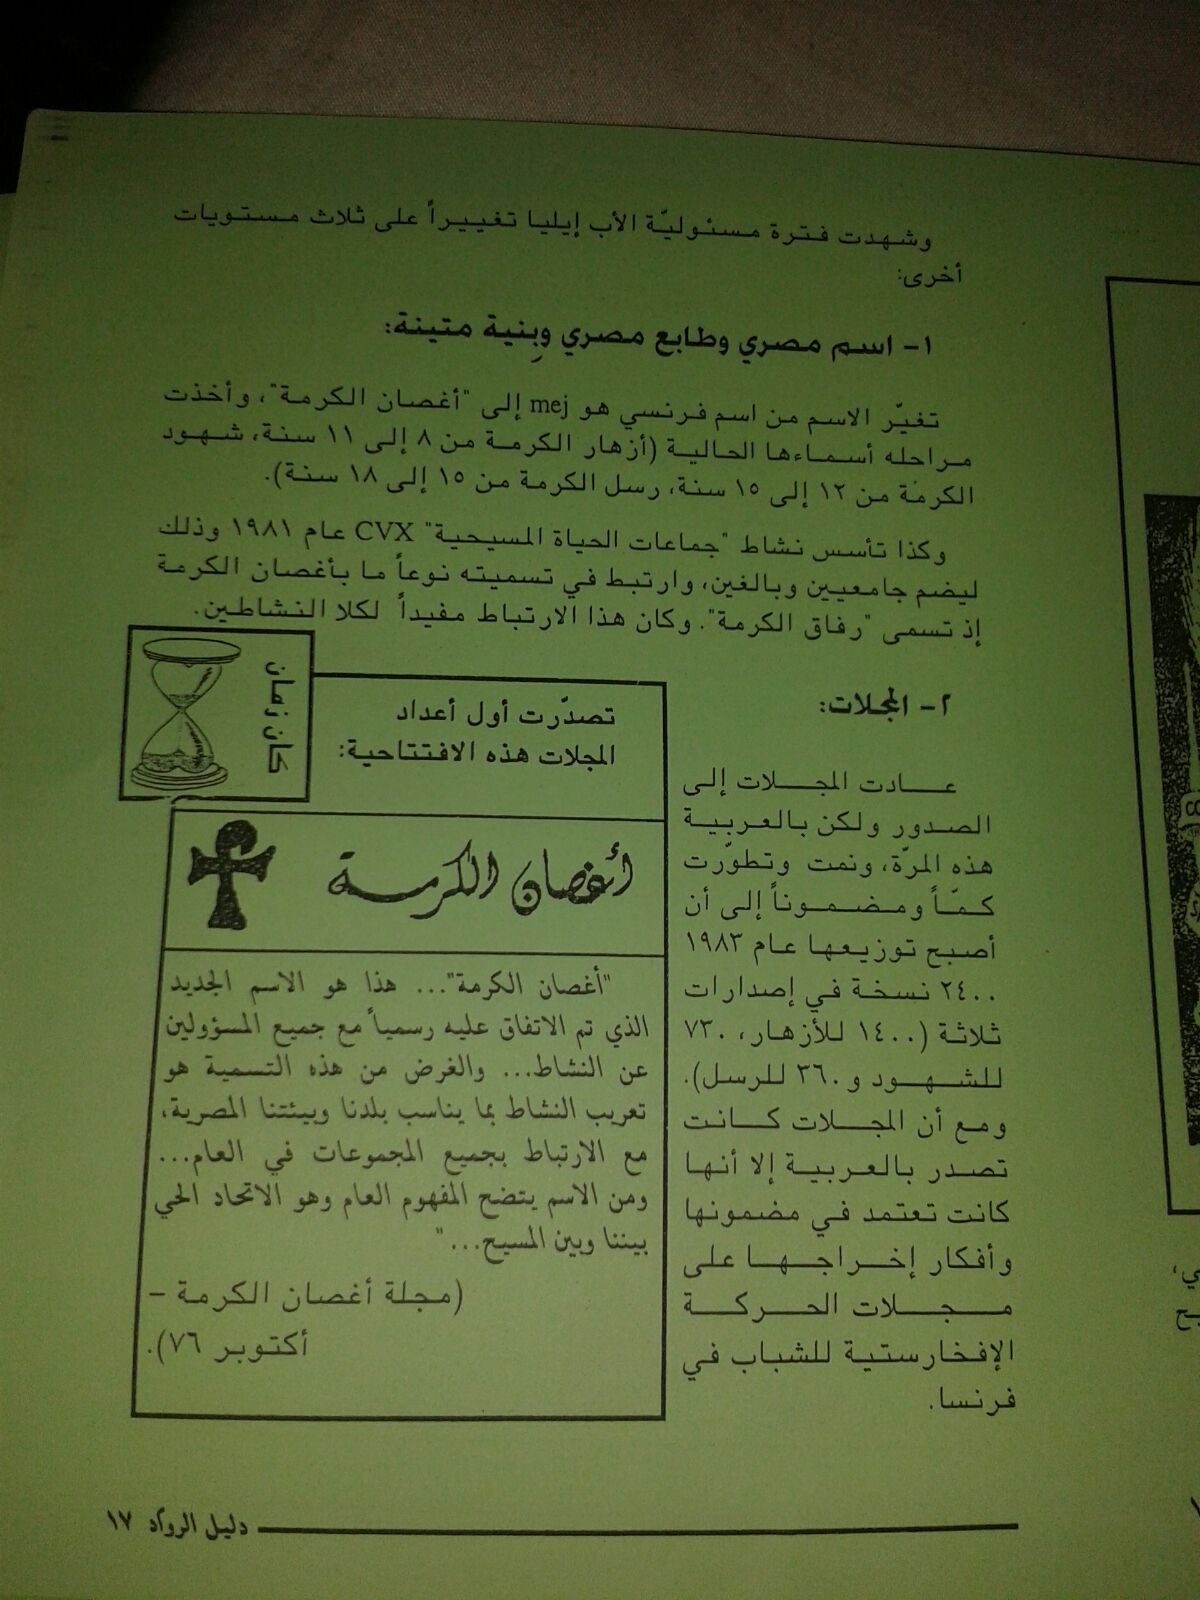 وشهدت فترة مسئوليّة الأب إيليا تغييراً على ثلاث مستويات
أخرى:
١- اسم مصري وطابع مصري وبِنية متينة:
تغيّر الاسم من اسم فرنسي هو mej إلى "أغصان الكرمة"، وأخذت
مراحله أسماءها الحالية (أزهار الكرمة من ٨ إلى ١١ سنة، شهود
الكرمة من ١٢ إلى ١٥ سنة، رسل الكرمة من ١٥ إلى ١٨ سنة).
وكذا تأسس نشاط "جماعات الحياة المسيحية" CVX عام ١٩٨١ وذلك
ليضم جامعيين وبالغين، وارتبط في تسميته نوعاً ما بأغصان الكرمة
إذ تسمى "رفاق الكرمة". وكان هذا الارتباط مفيداً لكلا النشاطين.
٢- المجلات:
عادت المجلات إلى
الصدور ولكن بالعربية
هذه المرّة، ونمت وتطوّرت
كمّاً ومضموناً إلى أن
أصبح توزيعها عام ١٩٨٣
٢٤٠٠ نسخة في إصدارات
ثلاثة (١٤٠٠ للأزهار، ٧٣٠
للشهود و٣٦٠ للرسل).
ومع أن المجلات كانت
تصدر بالعربية إلا أنها
كانت تعتمد في مضمونها
وأفكار إخراجها على
مجلات الحركة
الإفخارستية للشباب في
فرنسا.
كان زمان
تصدّرت أول أعداد
المجلات هذه الافتتاحية:
أغصان الكرمة
"أغصان الكرمة"... هذا هو الاسم الجديد
الذي تم الاتفاق عليه رسمياً مع جميع المسؤولين
عن النشاط... والغرض من هذه التسمية هو
تعريب النشاط بما يناسب بلدنا وبيئتنا المصرية،
مع الارتباط بجميع المجموعات في العام...
ومن الاسم يتضح المفهوم العام وهو الاتحاد الحي
بيننا وبين المسيح..."
(مجلة أغصان الكرمة –
أكتوبر ٧٦).
دليل الروّاد ١٧